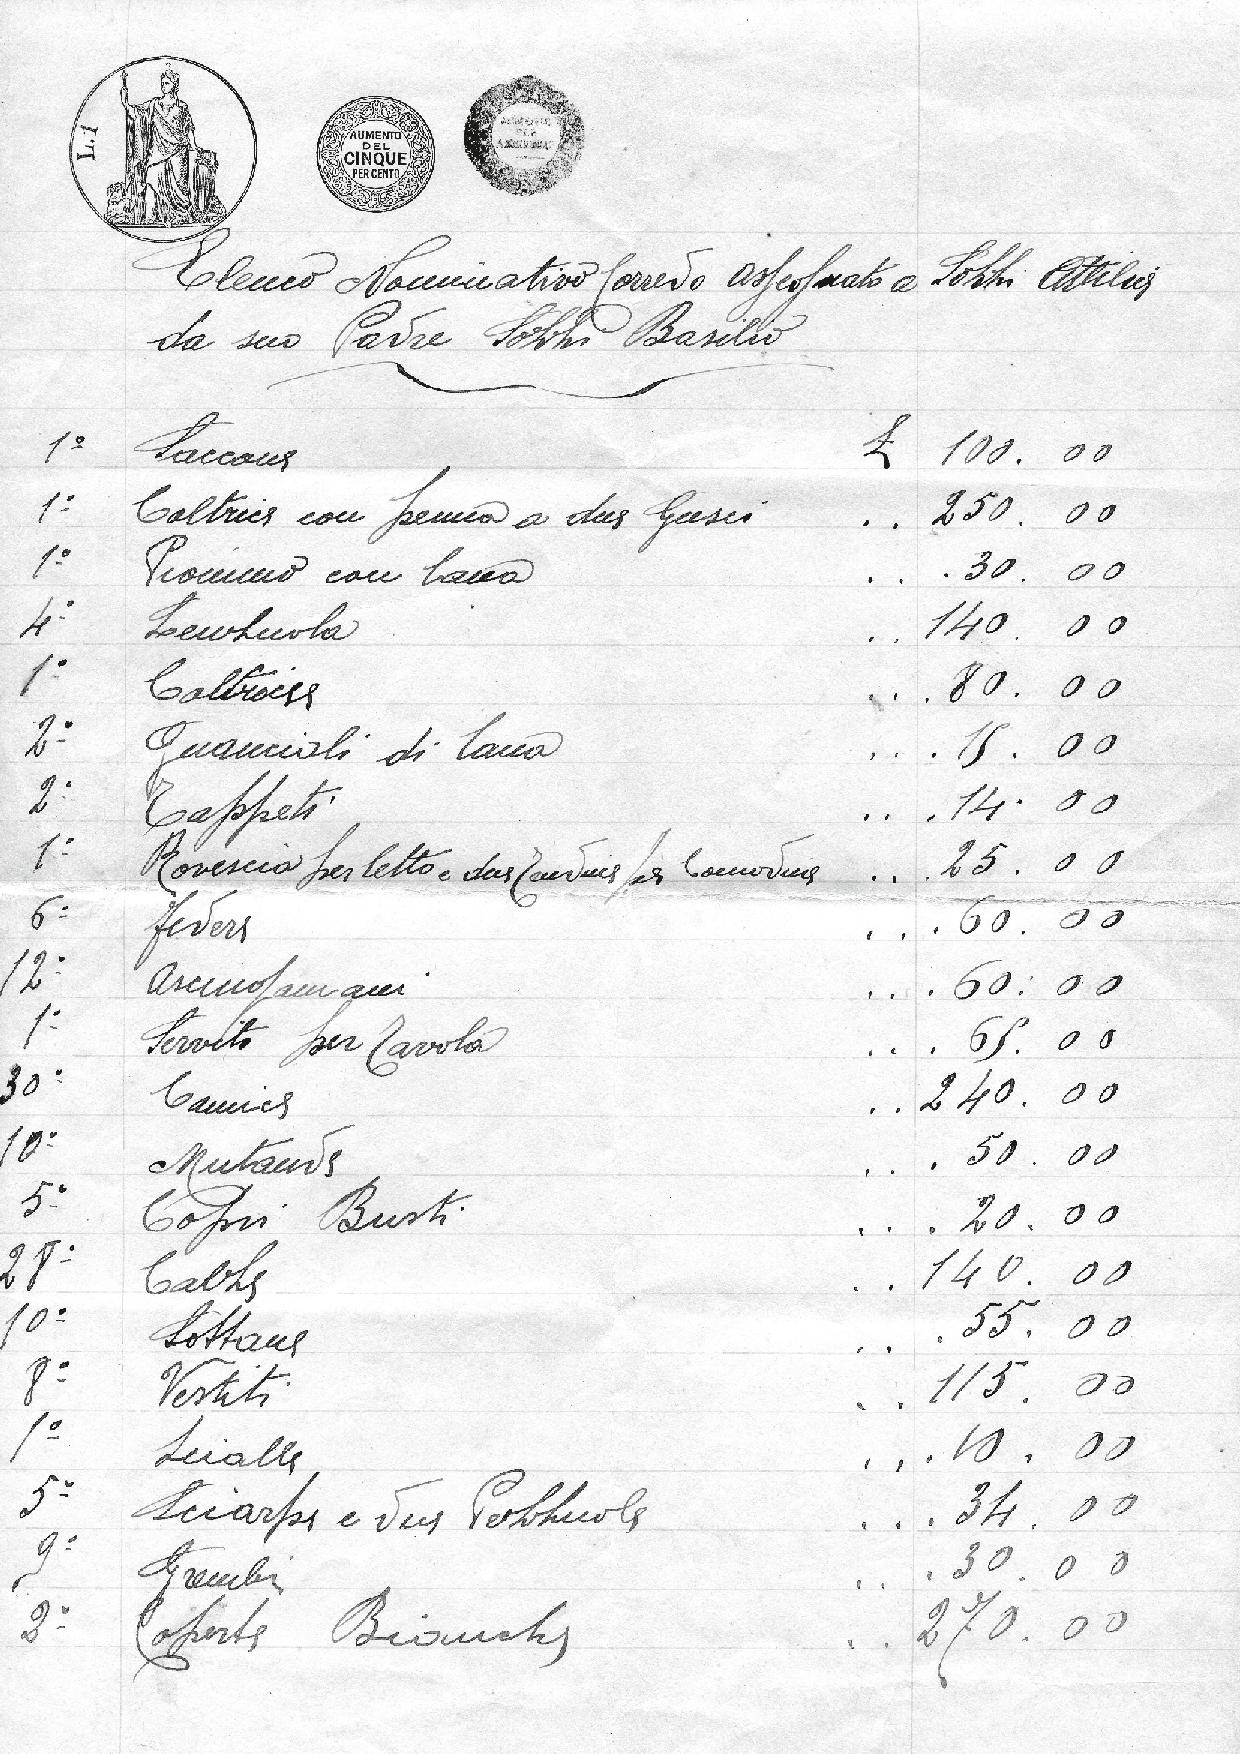 L.1
AUMENTO
DEL
CINQUE
PER CENTO
Elenco Nominativo Corredo assegnato a
da suo Padre Basilio
1º Saccone £ 100. 00
1º Coltrice con penna a due Gusci 250. 00
1º con lana 30. 00
4º Lenzuola 140. 00
1º Coltrice 80. 00
2º Guanciali di lana 15. 00
2º Tappeti 14. 00
1º Rovescia per letto e due per Comodine 25. 00
6º federe 60. 00
12º asciugamani 60. 00
1º Servito per Tavola 65. 00
30º Camice 240. 00
10º Mutande 50. 00
5º Copri Busti 20. 00
28º Calze 140. 00
10º Sottane 55. 00
8º Vestiti 115. 00
1º Scialle 10. 00
5º Sciarpe e due Pezzuole 34. 00
9º Grembi 30. 00
2º Coperte Bianche 270. 00